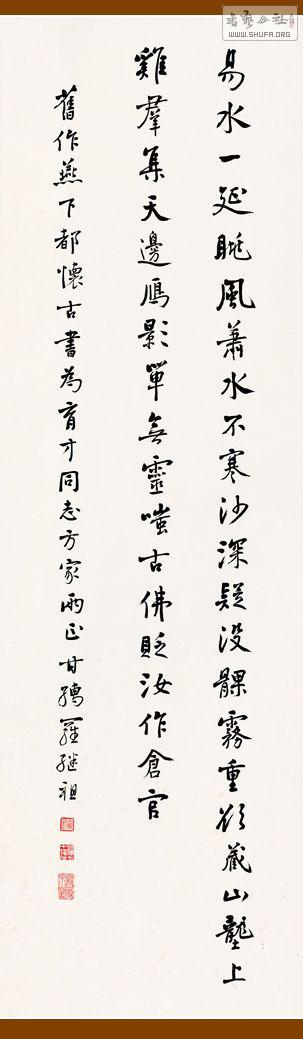 易水一延眺風蕭水不寒沙深疑没髁霧重欲藏山壟上
雞羣集天邊鴈影單無靈嗤古佛貶汝作倉官
舊作燕下都懷古書為育才同志方家兩正甘孺羅繼祖
WWW.SHUFA.ORG